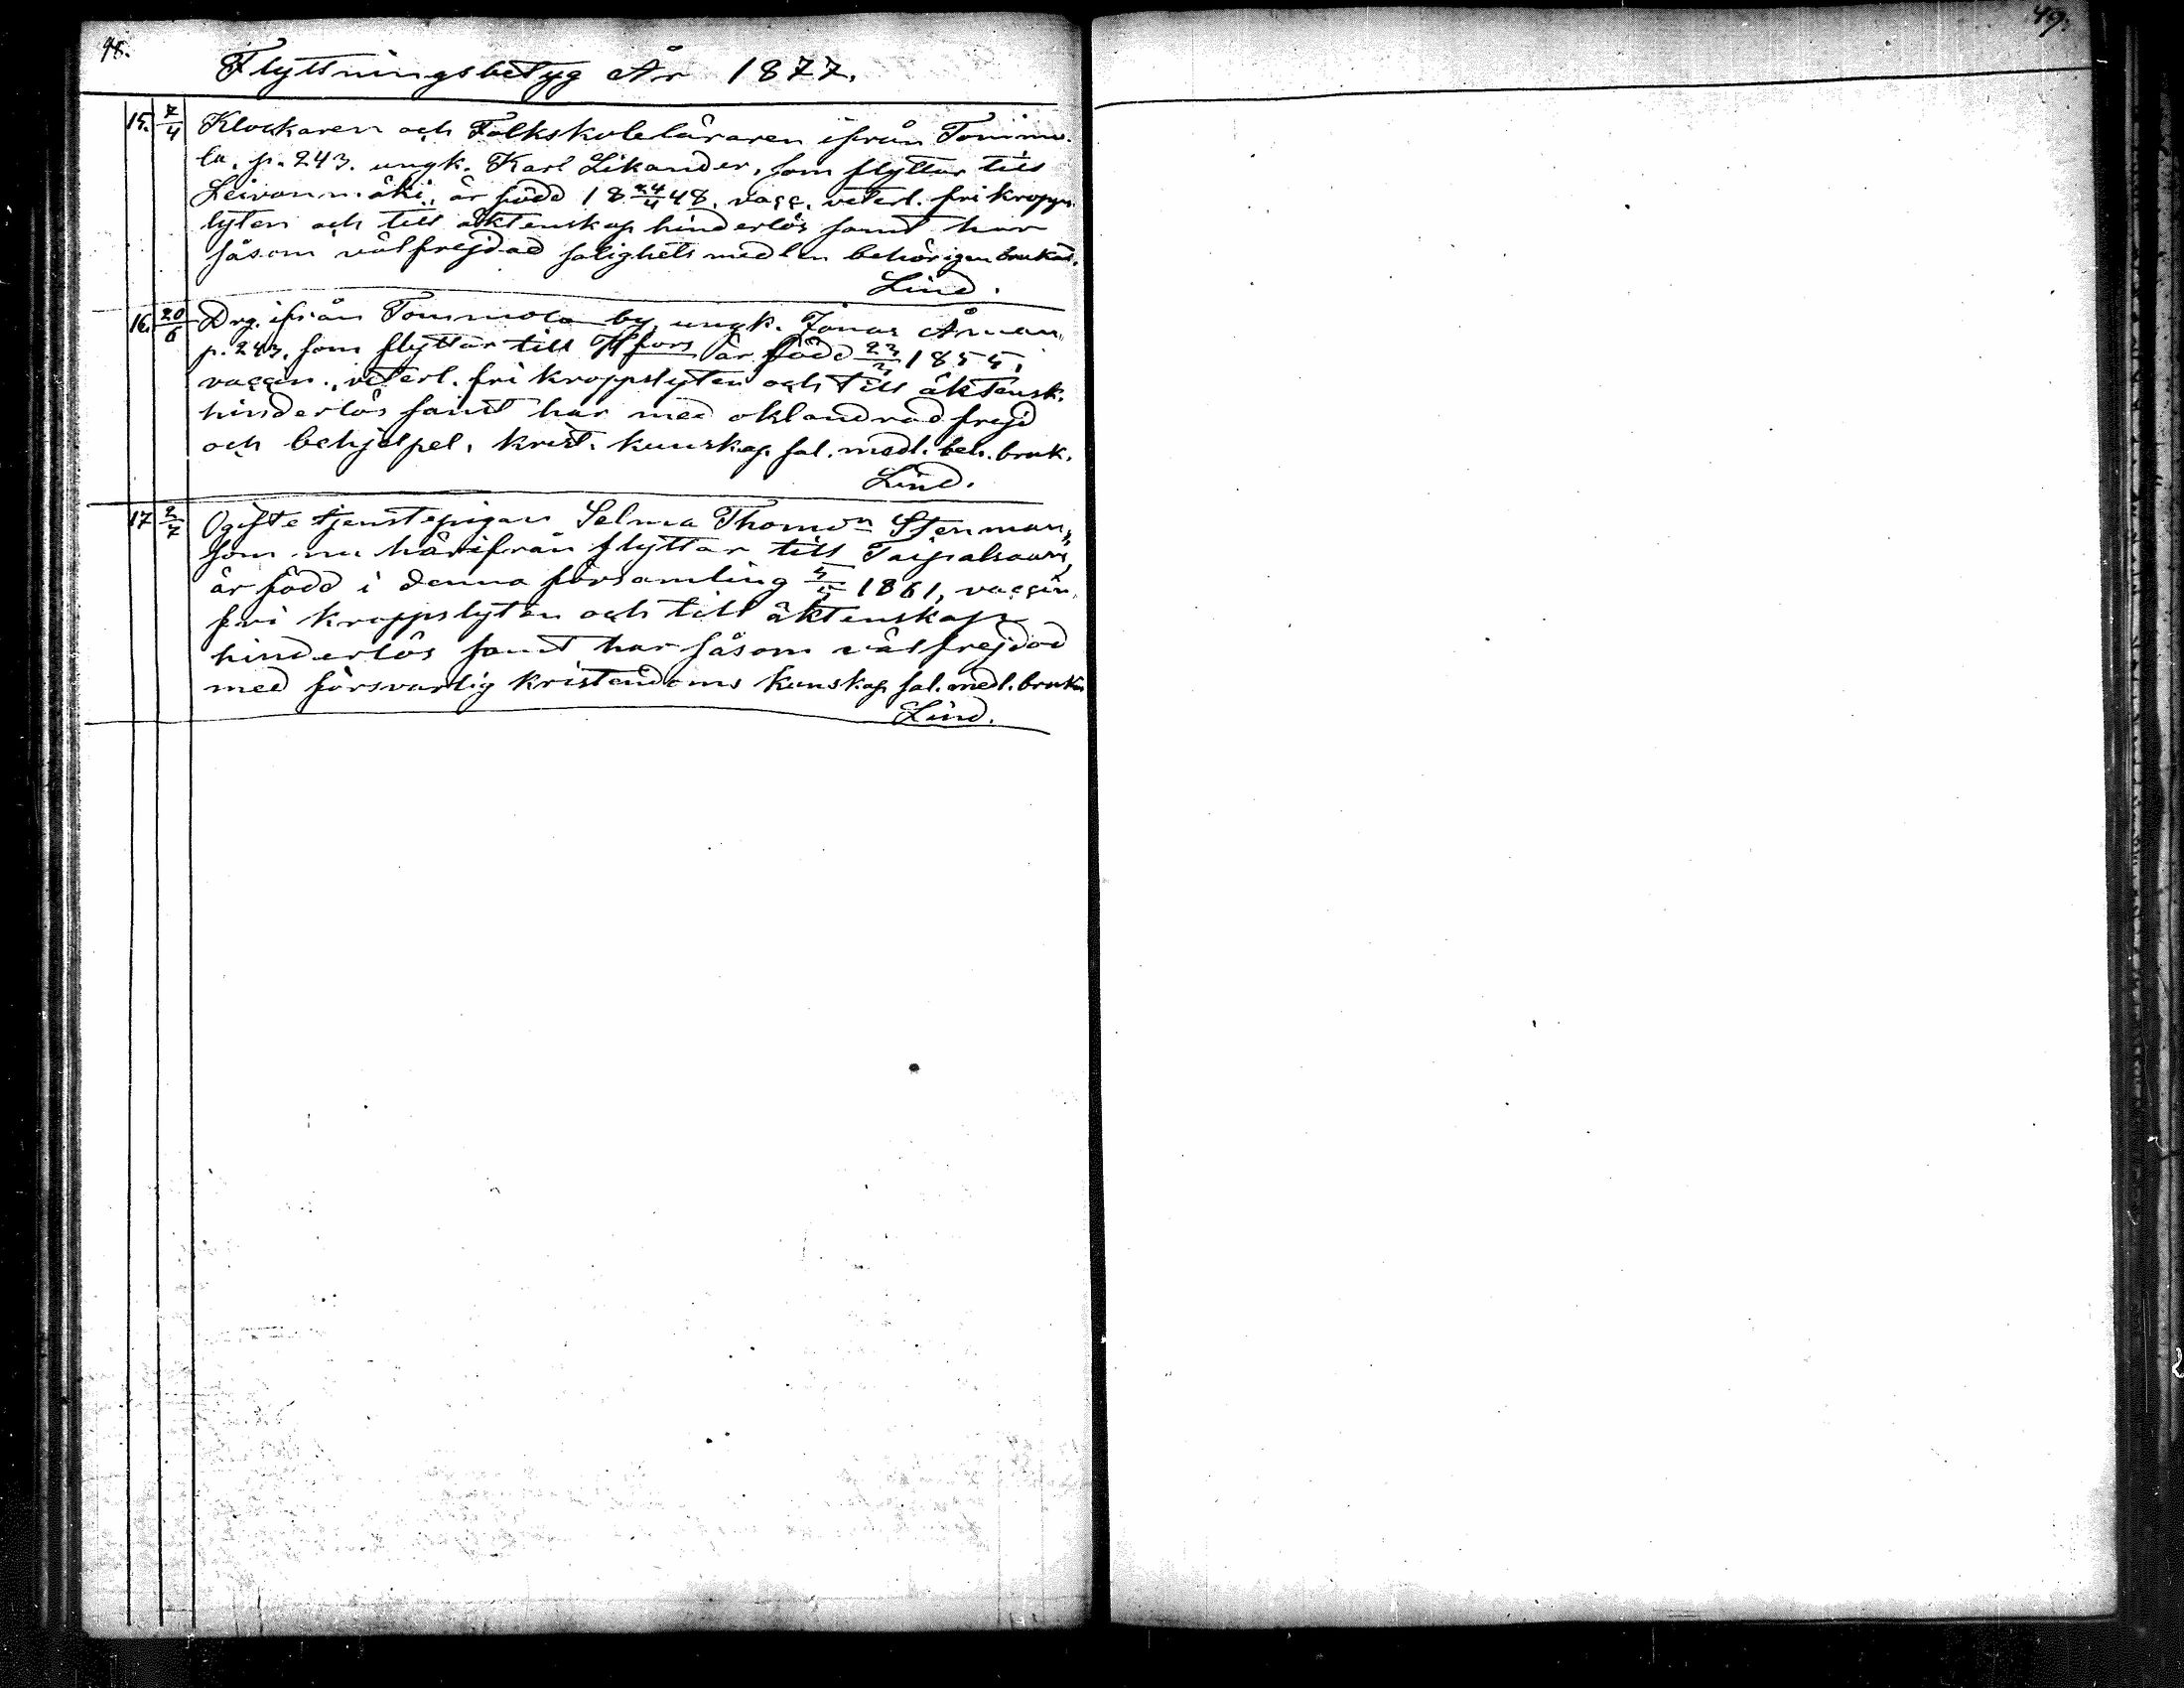 48.
49.
Flyttningsbetyg År 1877.
15. 7/4 Klockaren och Folkskoleläraren ifrån Tommo-
la, p. 243. ungk. Karl Likander, som flyttar till
Leivonmäki, är född 18 24/4 48. vacc. veterl. fri kropps-
lyten och till äktenskap hinderlös samt har
såsom välfrejdad salighets medlen behörigen brukat.
Lind.
16. 20/6 Drg. ifrån Tommola by, ungk. Jonas Åman,
p. 243, som flyttar till Hfors är född 1855,
vaccin., veterl. fri kroppslyten och till äktensk.
hinderlös samt har med oklandrad frejd
och behjelpel. krist. kunskap sal. medl. beh. bruk.
Lind.
17 2/7 Ogifte tjenstepigan Selma Thomdn Stenman,
som nu härifrån flyttar till Taipalsaari,
är född i denna församling 1861, vaccin.
fri kroppslyten och till äktenskap
hinderlös samt har såsom välfrejdad
med försvarlig kristendoms kunskap sal. medl. brukat
Lind.